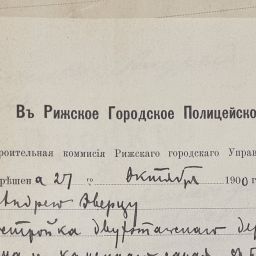 Въ Рижское Городское Полицейско
роительная коммисія Рижскаго городскаго Управ
рѣшен а 27 го октября 1900 го
Андрею Эверцу
стройка двухэтажнаго дер